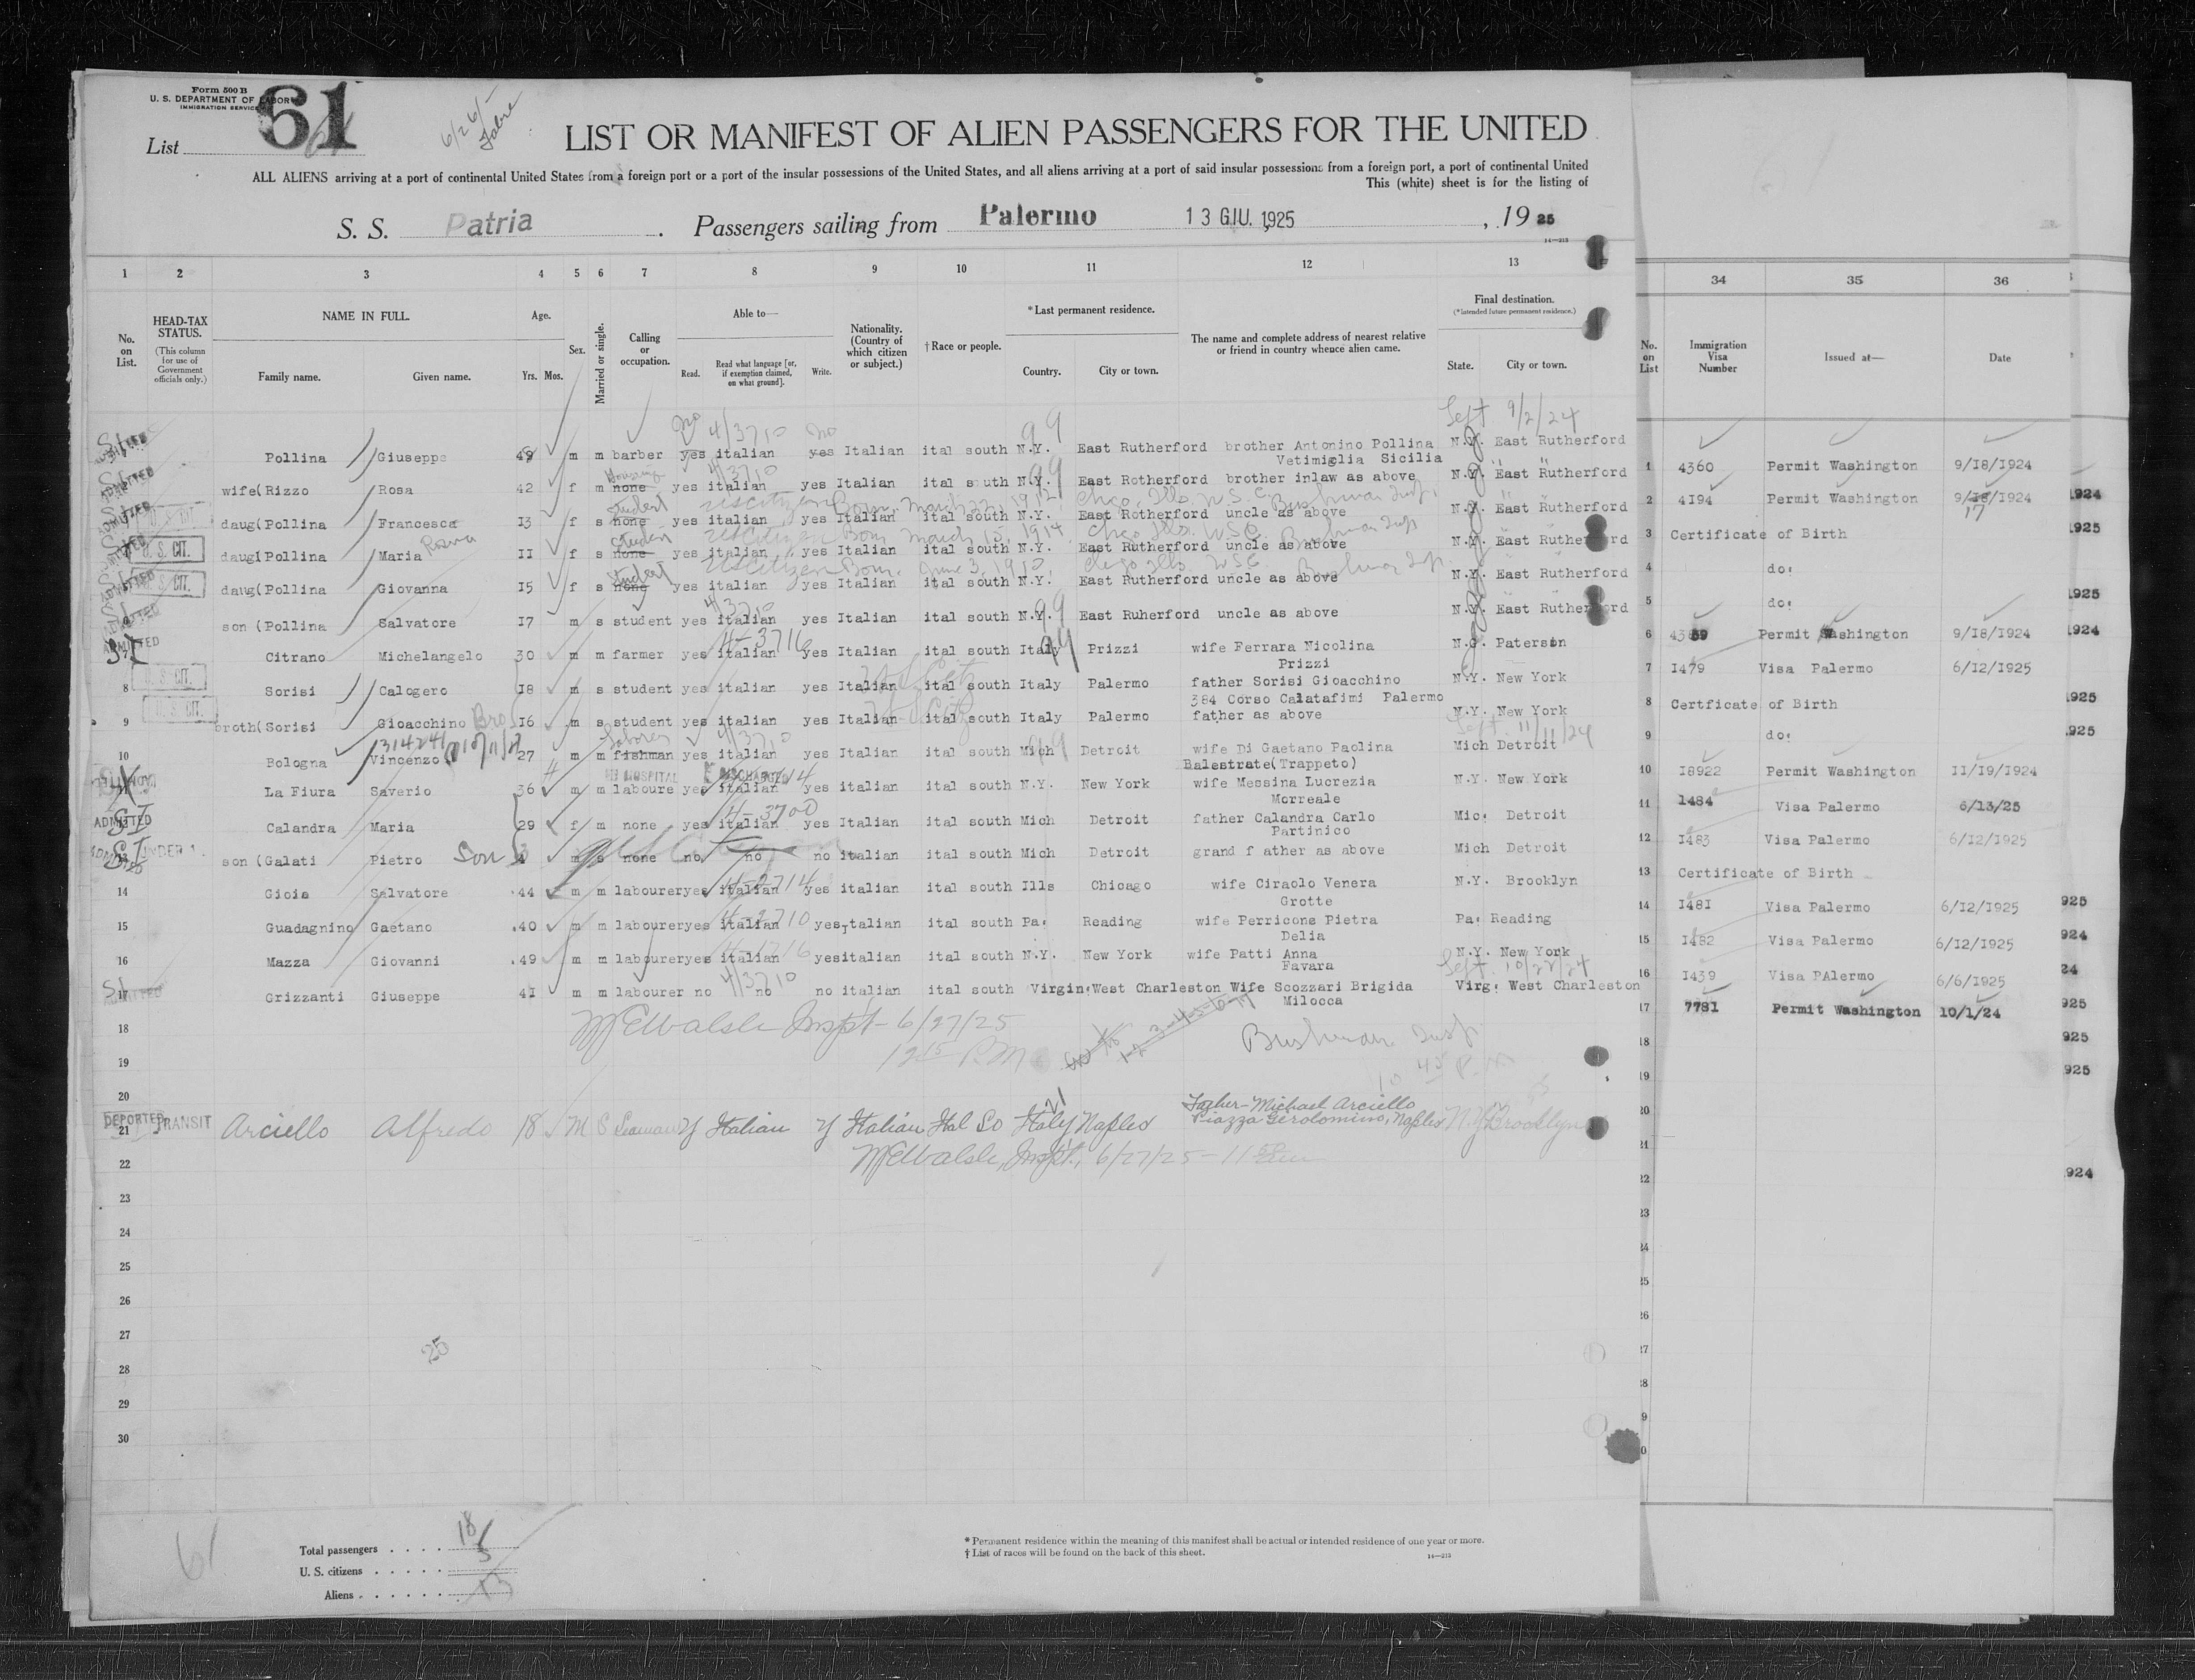 Form 500 B
U. S. DEPARTMENT OF LABOR
IMMIGRATION SERVICE
List 61
6/26/- Fabre
LIST OR MANIFEST OF ALIEN PASSENGERS FOR THE UNITED
ALL ALIENS arriving at a port of continental United States from a foreign port or a port of the insular possessions of the United States, and all aliens arriving at a port of said insular possessions from a foreign port, a port of continental United
This (white) sheet is for the listing of
S. S. Patria. Passengers sailing from Palermo 13 GIU. 1925, 19 25
14—213
1 2 3 4 5 6 7 8 9 10 11 12 13
34 35 36
No. on List.
HEAD-TAX STATUS.
(This column for use of Government officials only.)
NAME IN FULL.
Family name. Given name.
Age.
Yrs. Mos.
Sex.
Married or single.
Calling or occupation.
Able to—
Read. Read what language [or, if exemption claimed, on what ground]. Write.
Nationality. (Country of which citizen or subject.)
†Race or people.
*Last permanent residence.
Country. City or town.
The name and complete address of nearest relative or friend in country whence alien came.
Final destination.
(*Intended future permanent residence.)
State. City or town.
No. on List
Immigration Visa Number
Issued at—
Date
no 4/3710 no 99 Sept 9/2/24
Pollina Giuseppe 49 m m barber yes italian yes Italian ital south N.Y. East Rutherford brother Antonino Pollina N.Y. East Rutherford
Vetimiglia Sicilia
1 4360 Permit Washington 9/18/1924
ADMITTED wife(Rizzo Rosa 42 f m none yes italian yes Italian ital south N.Y. East Rotherford brother inlaw as above N.Y. East Rutherford
2 4194 Permit Washington 9/18/1924
17
student US Citizen Born March 22, 1912 Chgo, Ills. U.S.C. Bushman Insp.
ADMITTED daug(Pollina Francesca 13 f s none yes italian yes Italian ital south N.Y. East Rotherford uncle as above N.Y. East Rutherford
3 Certificate of Birth
student US Citizen Born March 15, 1914 Chgo Ills. U.S.C. Bushman Insp
U. S. CIT. daug(Pollina Maria Rosina 11 f s none yes italian yes Italian ital south N.Y. East Rutherford uncle as above N.Y. East Rutherford
4 do:
student US Citizen Born June 3, 1910, Chgo Ills. USC. Bushman Insp.
U. S. CIT. daug(Pollina Giovanna 15 f s none yes italian yes Italian ital south N.Y. East Rutherford uncle as above N.Y. East Rutherford
5 do:
4/3710 99
son (Pollina Salvatore 17 m s student yes italian yes Italian ital south N.Y. East Ruherford uncle as above N.Y. East Rutherford
6 4359 Permit Washington 9/18/1924
4-3716
ADMITTED SI Citrano Michelangelo 30 m m farmer yes italian yes Italian ital south Italy Prizzi wife Ferrara Nicolina N.G. Paterson
Prizzi
7 1479 Visa Palermo 6/12/1925
8 U. S. CIT. Sorisi Calogero 18 m s student yes italian yes Italian ital south Italy Palermo father Sorisi Gioacchino N.Y. New York
384 Corso Calatafimi Palermo
8 Certficate of Birth
9 U. S. CIT. broth(Sorisi Gioacchino Bro 16 m s student yes italian yes Italian ital south Italy Palermo father as above N.Y. New York
9 do:
laborer 4/3710 99 Sept. 11/11/24
10 Bologna Vincenzo 27 m m fishman yes italian yes Italian ital south Mich Detroit wife Di Gaetano Paolina Mich Detroit
Balestrate(Trappeto)
10 18922 Permit Washington 11/19/1924
IN HOSPITAL DISCHARGED
La Fiura Saverio 36 m m laboure yes italian yes italian ital south N.Y. New York wife Messina Lucrezia N.Y. New York
Morreale
11 1484 Visa Palermo 6/13/25
4-3700
ADMITTED SI Calandra Maria 29 f m none yes italian yes Italian ital south Mich Detroit father Calandra Carlo Mic: Detroit
Partinico
12 1483 Visa Palermo 6/12/1925
SI son (Galati Pietro Son m s none no no no italian ital south Mich Detroit grand f ather as above Mich Detroit
13 Certificate of Birth
14 Gioia Salvatore 44 m m labourer yes italian yes italian ital south Ills Chicago wife Ciraolo Venera N.Y. Brooklyn
Grotte
14 1481 Visa Palermo 6/12/1925
15 Guadagnino Gaetano 40 m m labourer yes italian yes italian ital south Pa: Reading wife Perricone Pietra Pa: Reading
Delia
15 1482 Visa Palermo 6/12/1925
16 Mazza Giovanni 49 m m labourer yes italian yes italian ital south N.Y. New York wife Patti Anna N.Y. New York
Favara
16 1439 Visa PAlermo 6/6/1925
4/3710 Sept. 10/22/24
17 SI ADMITTED Grizzanti Giuseppe 41 m m labourer no no no italian ital south Virgin: West Charleston Wife Scozzari Brigida Virg: West Charleston
Milocca
17 7781 Permit Washington 10/1/24
18 McWalsh Inspt- 6/27/25
12 15 P.M
Bushman Insp
10 45 P.M
19
20
DEPORTED TRANSIT
21 Arciello Alfredo 18 M S Seaman Y Italian Y Italian Ital So Italy Naples Father-Michael Arciello N.Y. Brooklyn
Piazza Gerolomino, Naples
22 McWalsh, Inspt., 6/27/25-11
23
24
25
26
27
25
28
29
30
61
Total passengers 18
U. S. citizens 5
Aliens 13
*Permanent residence within the meaning of this manifest shall be actual or intended residence of one year or more.
†List of races will be found on the back of this sheet.
14—213